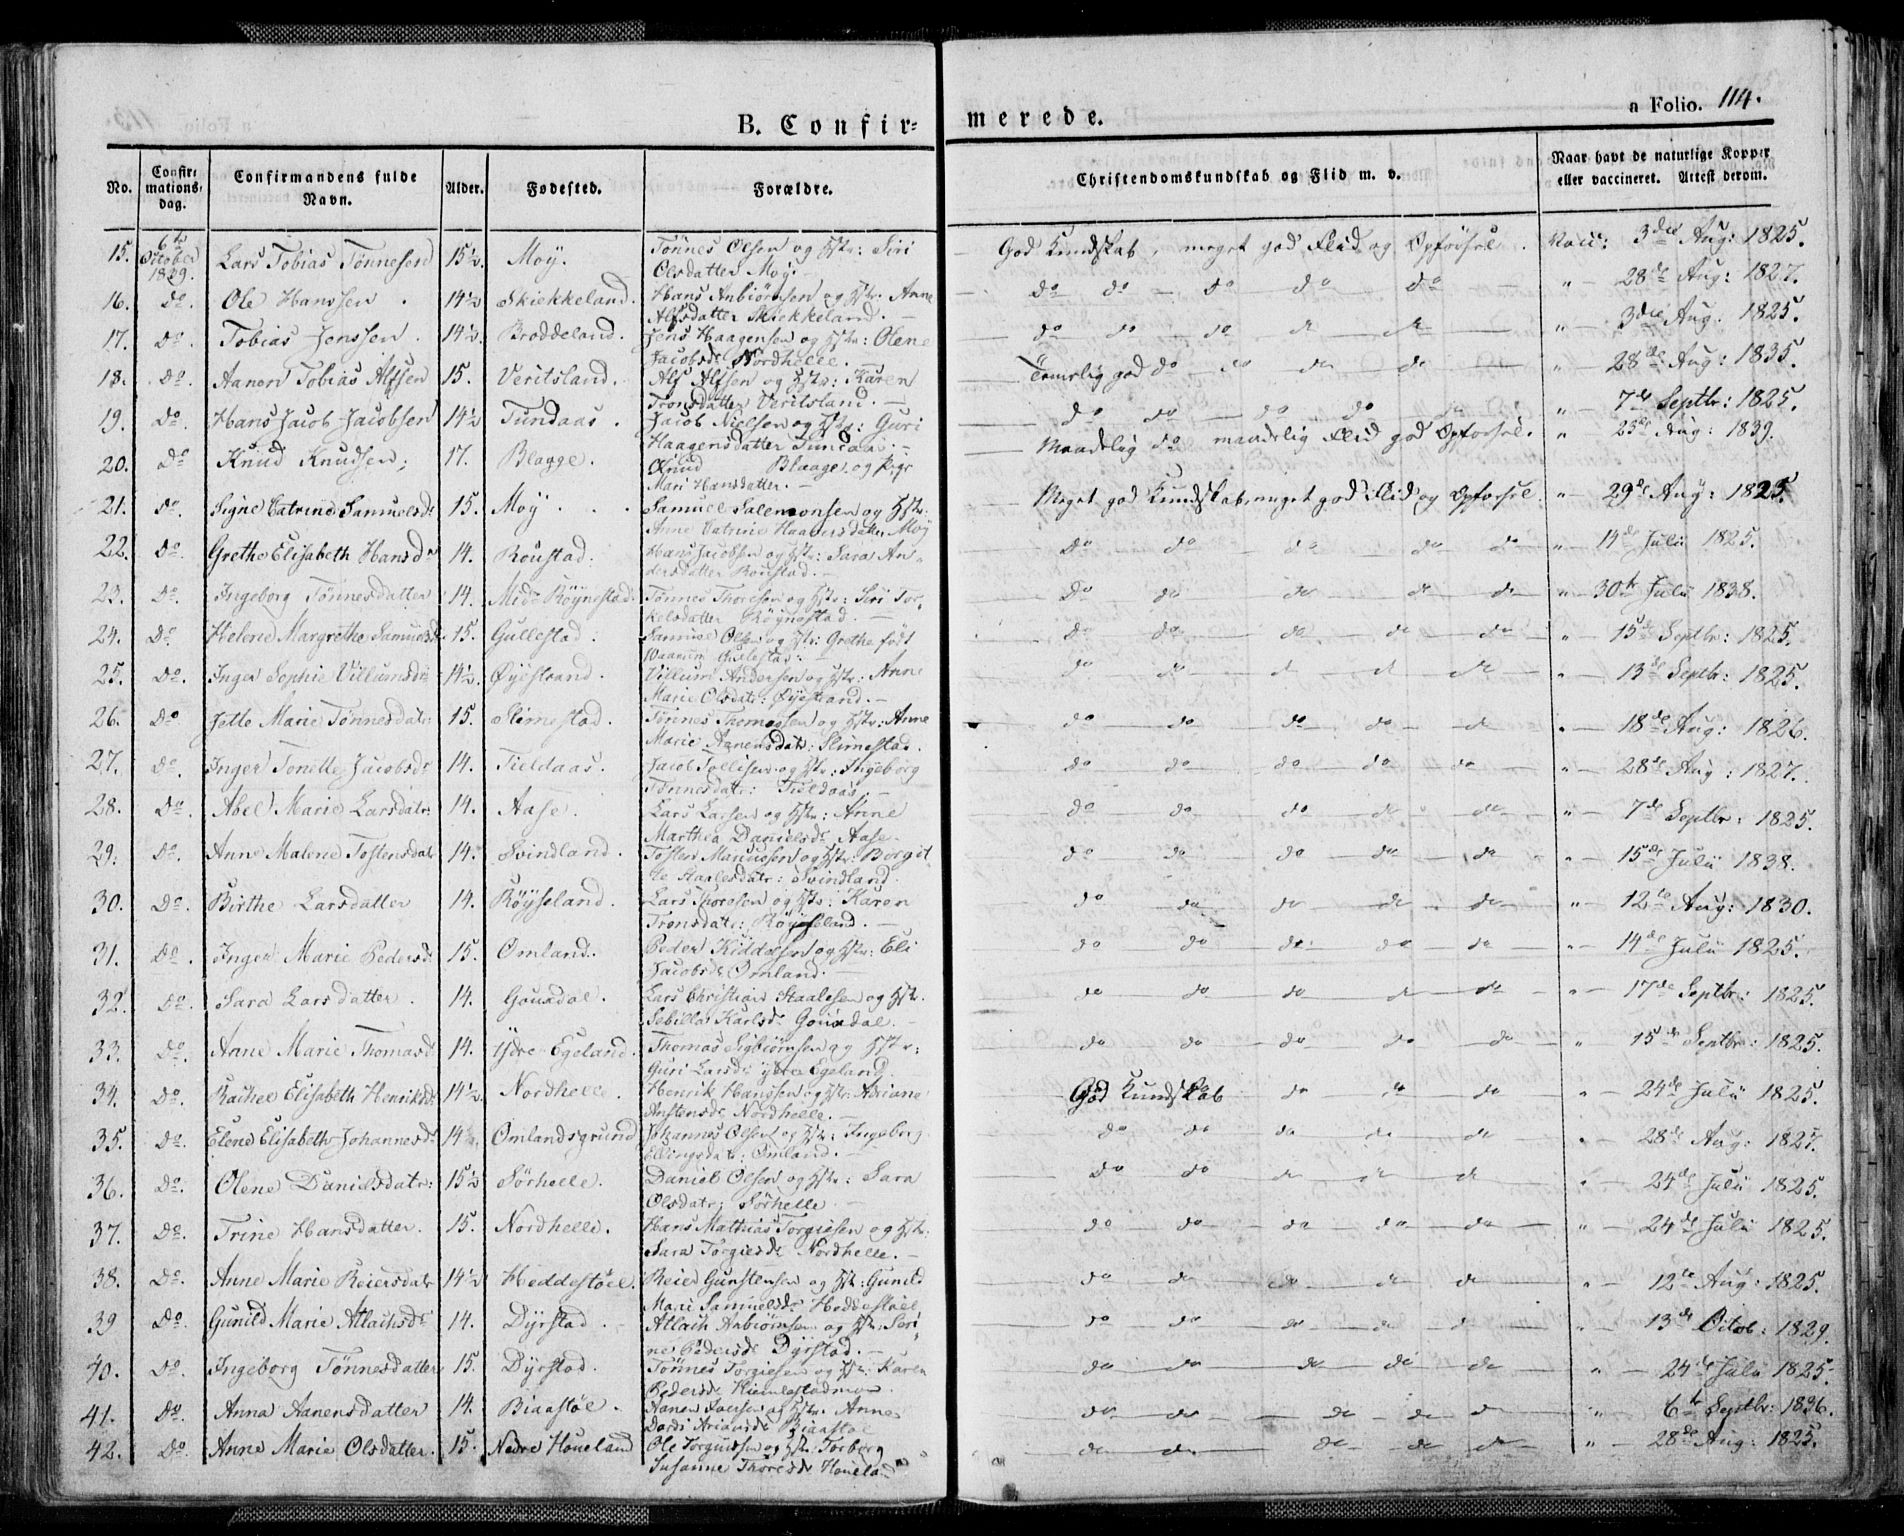 B. Confirmerede.
a Folio. 114.
No. Confirmationsdag. Confirmandens fulde Navn. Alder. Fødested. Forældre. Christendomskundskab og Flid m. v. Naar havt de naturlige Kopper eller vaccineret. Attest derom.
15. 6te October 1839. Lars Tobias Tønnesen 15½. Moy. Tønnes Olsen og Hstr: Siri Olsdatter Moy. God Kundskab, meget god Flid og Opførsel. Vacc: 3die Aug: 1825.
16. Do. Ole Hanssen. 14½ Skiekkeland. Hans Anbiørnsen og Hstr. Anne Alfsdatter Skiekkeland. do do do do do " 28de Aug: 1827.
17. Do. Tobias Jenssen. 14½. Broddeland. Jens Haagensen og Hstr: Olene Jacobsdr Nordhelle. do do do do do " 3die Aug. 1825.
18. Do. Aanon Tobias Alfsen 15. Veritsland. Alf Alfsen og Hstr: Karen Tronsdatter Veritsland. Temelig god do do do do " 28de Aug: 1835.
19. Do Hans Jacob Jacobsen 14½ Tundaas. Jacob Nielsen og Hstr: Guri Haagensdatter Tundaas. do do do do do " 7de Septbr: 1825.
20. Do Knud Knudsen, 17. Blagge. Knud Blaage og Pige Mari Hansdatter. Maadelig do maadelig Flid god Opførsel. " 23de Aug: 1839.
21. Do. Signe Catrine Samuelsdr 15. Moy. Samuel Salemonsen og Hstr: Anne Catrine Haaversdatter Moy Meget god Kundskab, meget god Flid og Opførsel. " 29de Aug: 1825.
22. Do. Grethe Elisabeth Hansdr 14. Roustad. Hans Jacobsen og Hstr: Sara Andersdatter Roustad. do do do do do " 14de Julii 1825.
23. Do. Ingeborg Tønnesdatter 14. Midb Røynestad. Tønnes Thoresen og Hstr: Siri Torkelsdatter Røynestad. do do do do do " 30te Julii 1838.
24. Do. Helene Margrethe Samuelsdr 15. Gullestad. Samuel Olsen og Hstr: Grethe født Waarum Gullestad. do do do do do " 15de Septbr: 1825.
25. Do. Inger Sophie Villumsdr 14½. Øyestrand. Villum Andersen og Hstr: Anne Marie Olsdatr: Øyestrand. do do do do do " 13de Septbr: 1825.
26. Do Jette Marie Tønnesdatr: 15. Slimestad. Tønnes Thomassen og Hstr: Anne Marie Aanensdatr: Slimestad. do do do do do " 18de Aug: 1826.
27. Do. Inger Tonette Jacobsdr 14. Tieldaas. Jacob Tollisen og Hstr: Ingeborg Tønnesdatr: Tieldaas. do do do do do " 28de Aug: 1827.
28. Do. Abel Marie Larsdatr: 14. Aase. Lars Larsen og Hstr: Anne Marthea Danielsdr Aase. do do do do do " 7de Septbr: 1825.
29. Do. Anne Malene Tostensdatr 14. Svindland. Tosten Manussen og Hstr: Borgitte Staalesdatr: Svindland. do do do do do " 15de Julii 1838.
30. Do. Birthe Larsdatter 14. Røyseland. Lars Thoresen og Hstr: Karen Tronsdatr: Røyseland. do do do do do " 12te Aug: 1830.
31. Do. Inger Marie Pedersdr 15. Omland. Peder Kiddelsen og Hstr: Eli Jacobsdr Omland. do do do do do " 14de Julii 1825.
32. Do. Sara Larsdatter. 14. Gouadal. Lars Christian Staalesen og Hstr. Sebilla Karlsdr Gouadal. do do do do do " 17de Septbr: 1825.
33. Do. Anne Marie Thomasdr 14. Ydre Egeland. Thomas Sigbiørnsen og Hstr: Guri Larsdr ydre Egeland. do do do do do " 15de Septbr: 1825.
34. Do. Rachel Elisabeth Henriksdr 14½. Nordhelle. Henrik Hanssen og Hstr: Adriane Anstensdr Nordhelle. God Kundskab do do do " 24de Julii 1825.
35. Do. Elene Elisabeth Johannesdr 14½. Omlandsgrund Johannes Olsen og Hstr: Ingeborg Ellingsdatr: Omland. do do do do do " 28de Aug: 1827.
36. Do. Olene Danielsdatr: 15½ Sørhelle. Daniel Olsen og Hstr: Sara Olsdatr: Sørhelle do do do do do " 24de Julii 1825.
37. Do. Trine Hansdatter. 15. Nordhelle. Hans Mathias Torgiesen og Hstr: Sara Torgiesdr Nordhelle. do do do do do " 24de Julii 1825.
38. Do. Anne Marie Reiersdatr 14½ Heddestøel. Reier Gunstensen og Hstr: Gunild Mari Samuelsdr Heddestøel do do do do do " 12te Aug: 1825.
39 Do. Gunild Marie Atlachsdr 14. Dyrstad. Atlach Anbiørnsen og Hstr: Serine Pedersdr Dyrstad. do do do do do " 13de Octob: 1829.
40. Do Ingeborg Tønnesdatter 15. Dyrstad. Tønnes Torgiesen og Hstr: Karen Pedersdr do do do do do " 24de Julii 1825.
41. Do Anna Aanensdatter 14. Biaastøl. Aanen Iversen og Hstr. Anne Biaastøl do do do do do " 6te Septbr: 1836.
42. Do Anne Marie Olsdatter. 15. Nedre Houeland Ole Torgiussen og Hstr. Torborg Susanne Thoresdr Houeland do do do do do " 28de Aug: 1825.